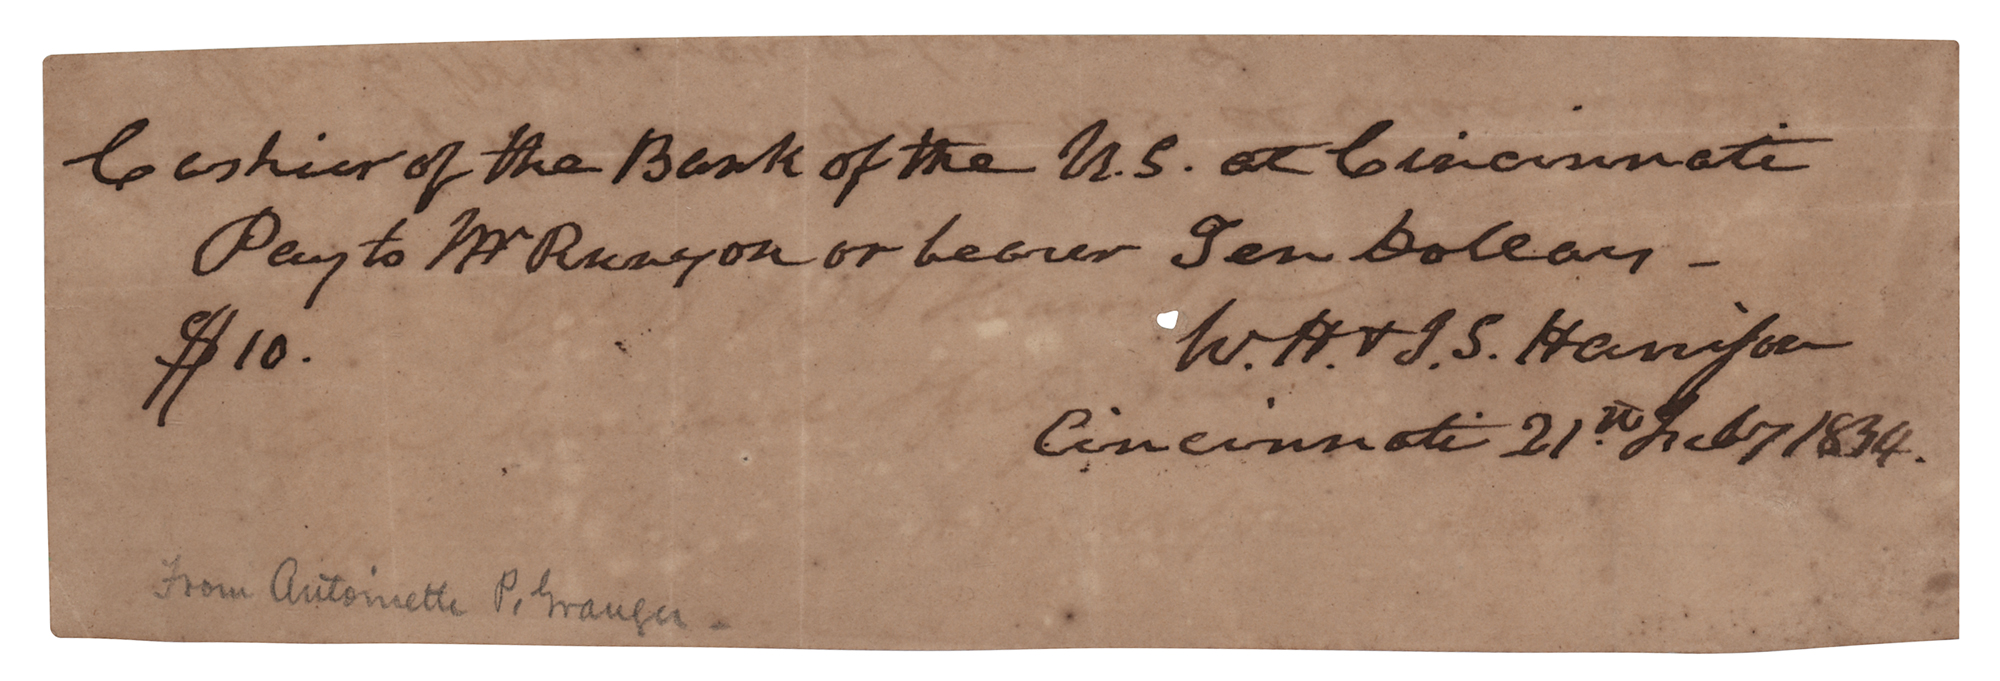 Cashier of the Bank of the U.S. at Cincinnati
Pay to Mr Runyon or bearer Ten Dollars –
$10.
W. H. & J. S. Harrison
Cincinnati 21st Feby 1834.
From Antoinette P. Granger –